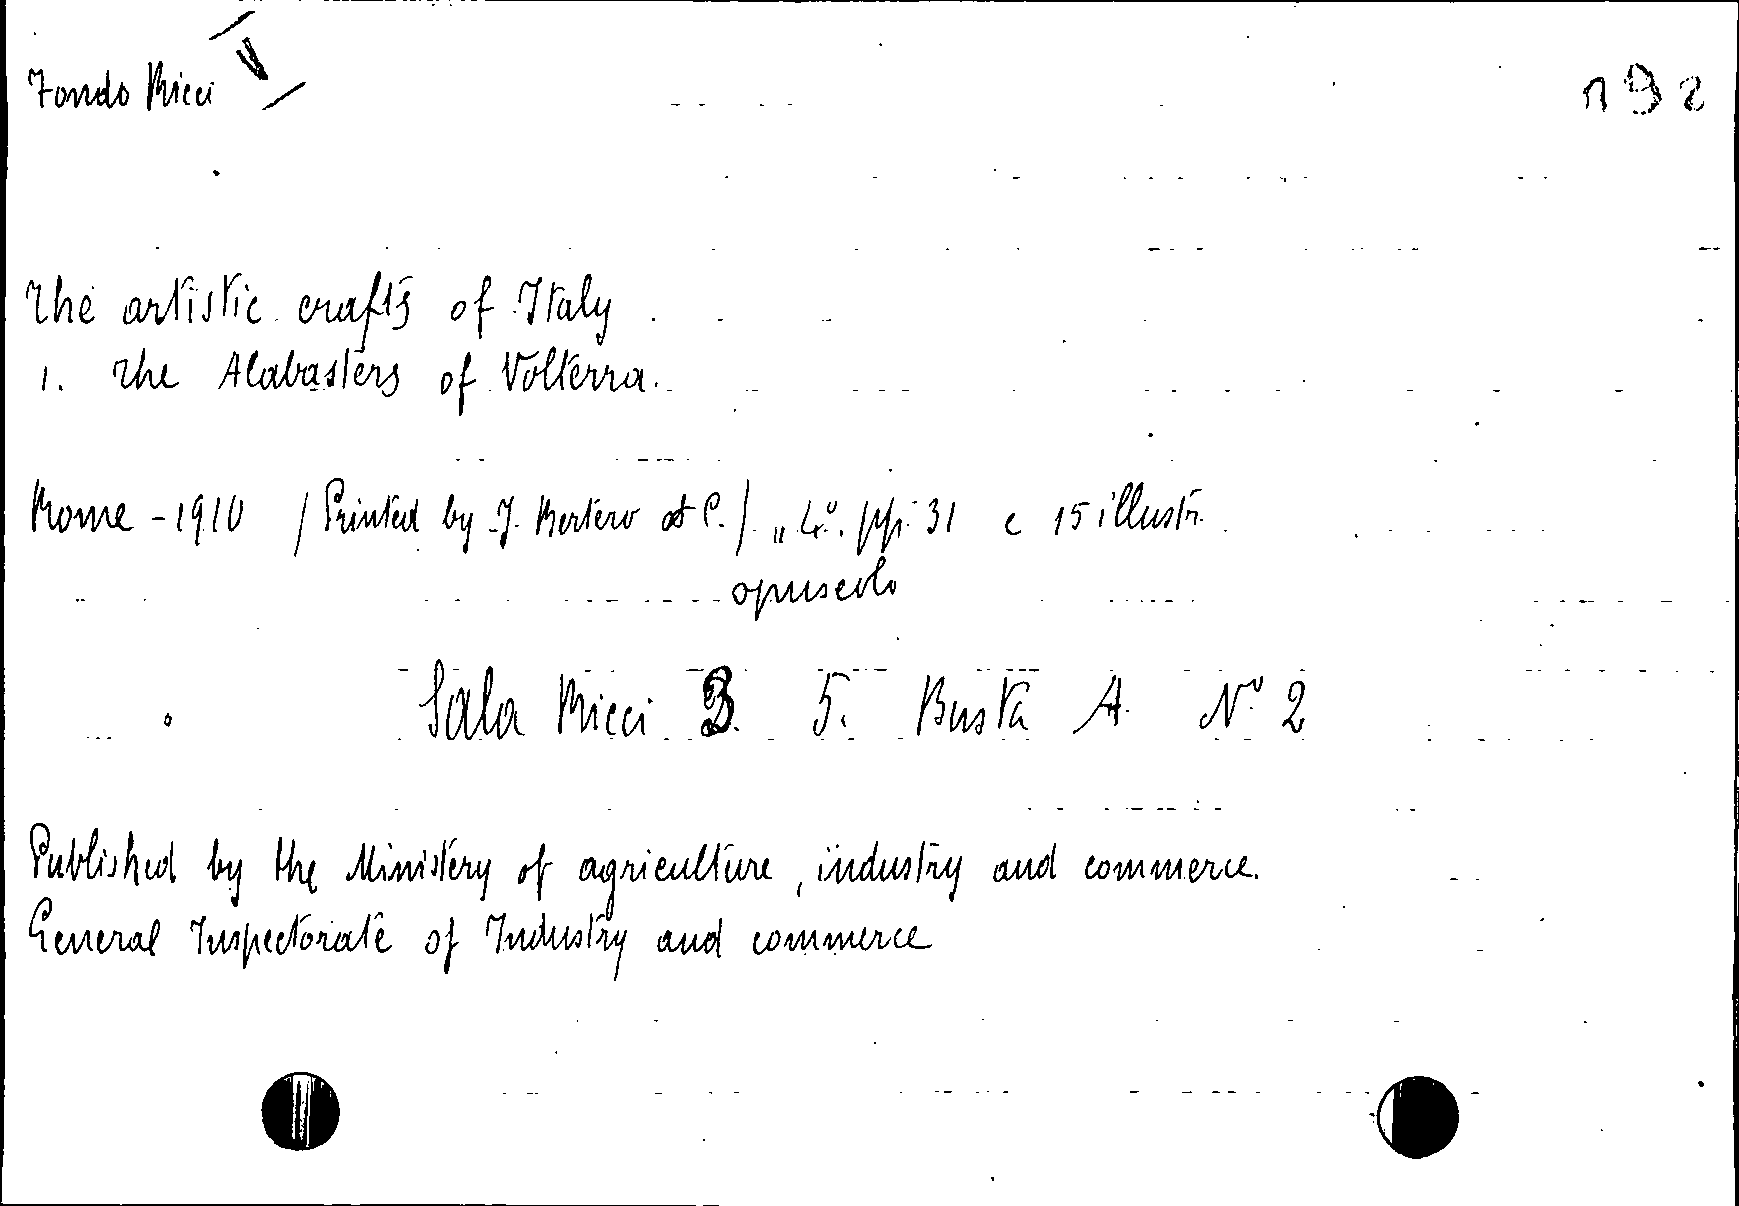 Fondo Ricci V
192
The artistic crafts of Italy
1. The Alabasters of Volterra.
Rome - 1910 / Printed by J. Bertero et C. / „ 4°. pp. 31 c 15 illustr.
opuscolo
Sala Ricci 3. 5. Busta A. N.° 2
Published by the Ministery of agriculture, industry and commerce.
General Inspectorate of Industry and commerce